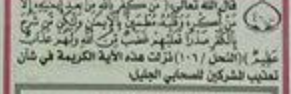 قال الله تعالى: ( من كفر بالله من بعد إيمانه إلا
من أكره وقلبه مطمئن بالإيمان ولكن من شرح
بالكفر صدرا فعليهم غضب من الله ولهم عذاب
عظيم )( النحل / ١٠٦) نزلت هذه الآية الكريمة في شأن
تعذيب المشركين للصحابي الجليل: